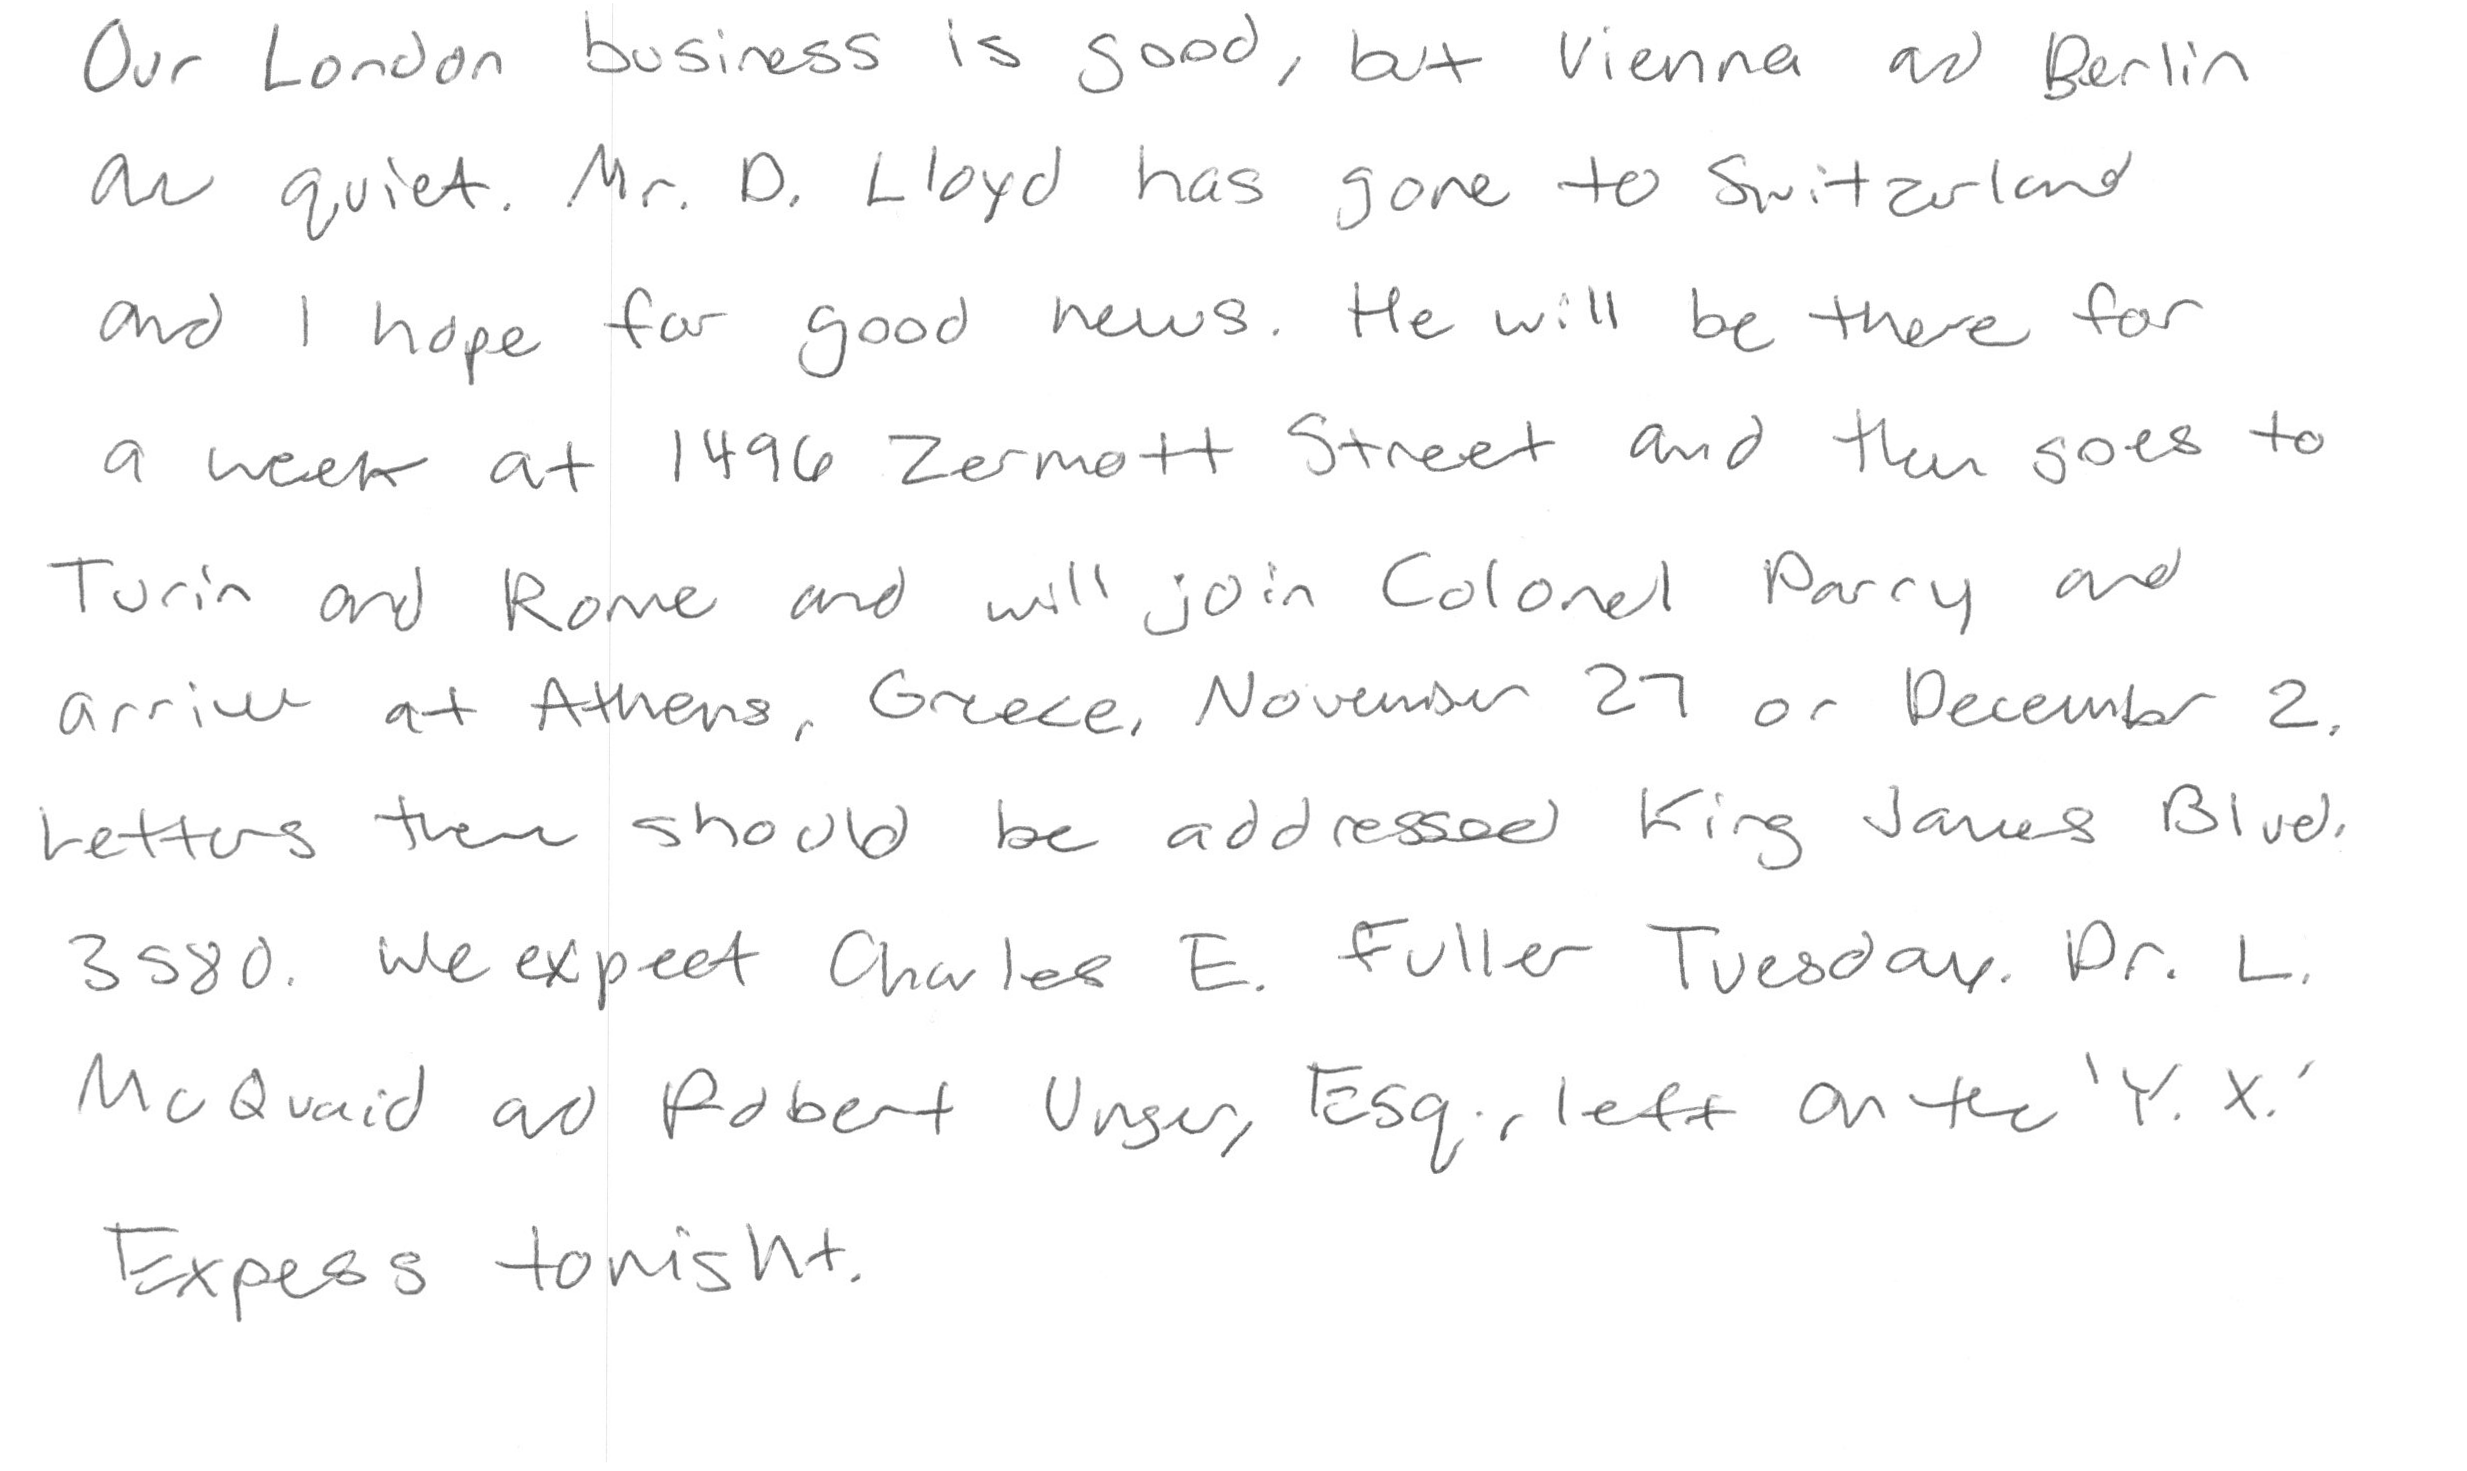 Our London business is good, but Vienna and Berlin
are quiet. Mr. D. Lloyd has gone to Switzerland
and I hope for good news. He will be there for
a week at 1496 Zermott Street and then goes to
Turin and Rome and will join Colonel Parry and
arrive at Athens, Greece, November 27 or December 2.
Letters there should be addressed King James Blvd.
3580. We expect Charles E. Fuller Tuesday. Dr. L.
McQuaid and Robert Unger, Esq., left on the 'Y. X.'
Express tonight.